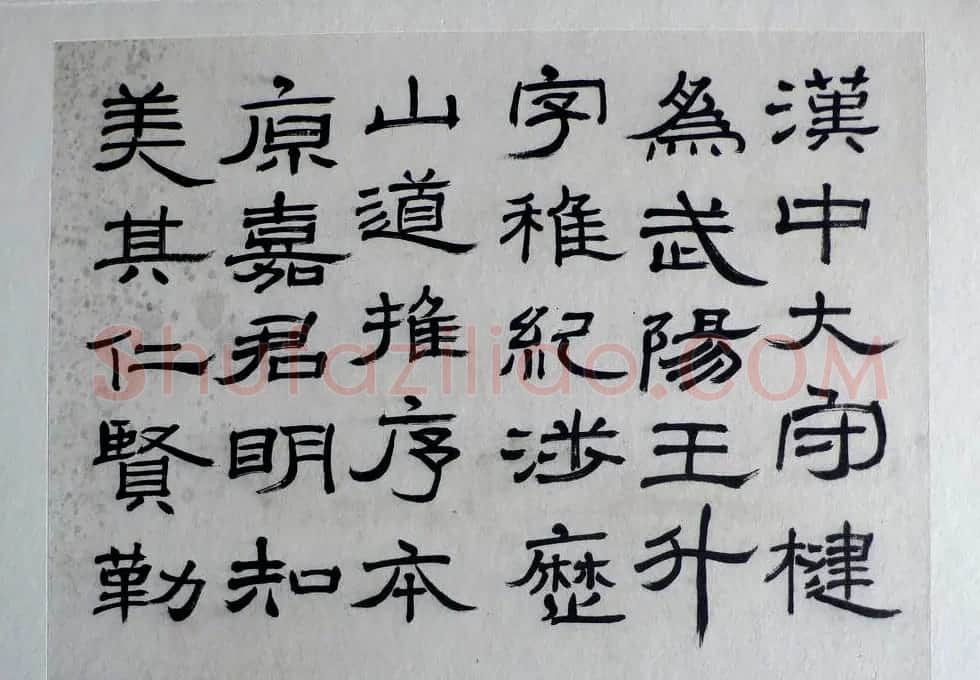 漢中大守楗
爲武陽王升
字稚紀涉歷
山道推序本
原嘉君明知
美其仁賢勤
Shufaziliao.COM